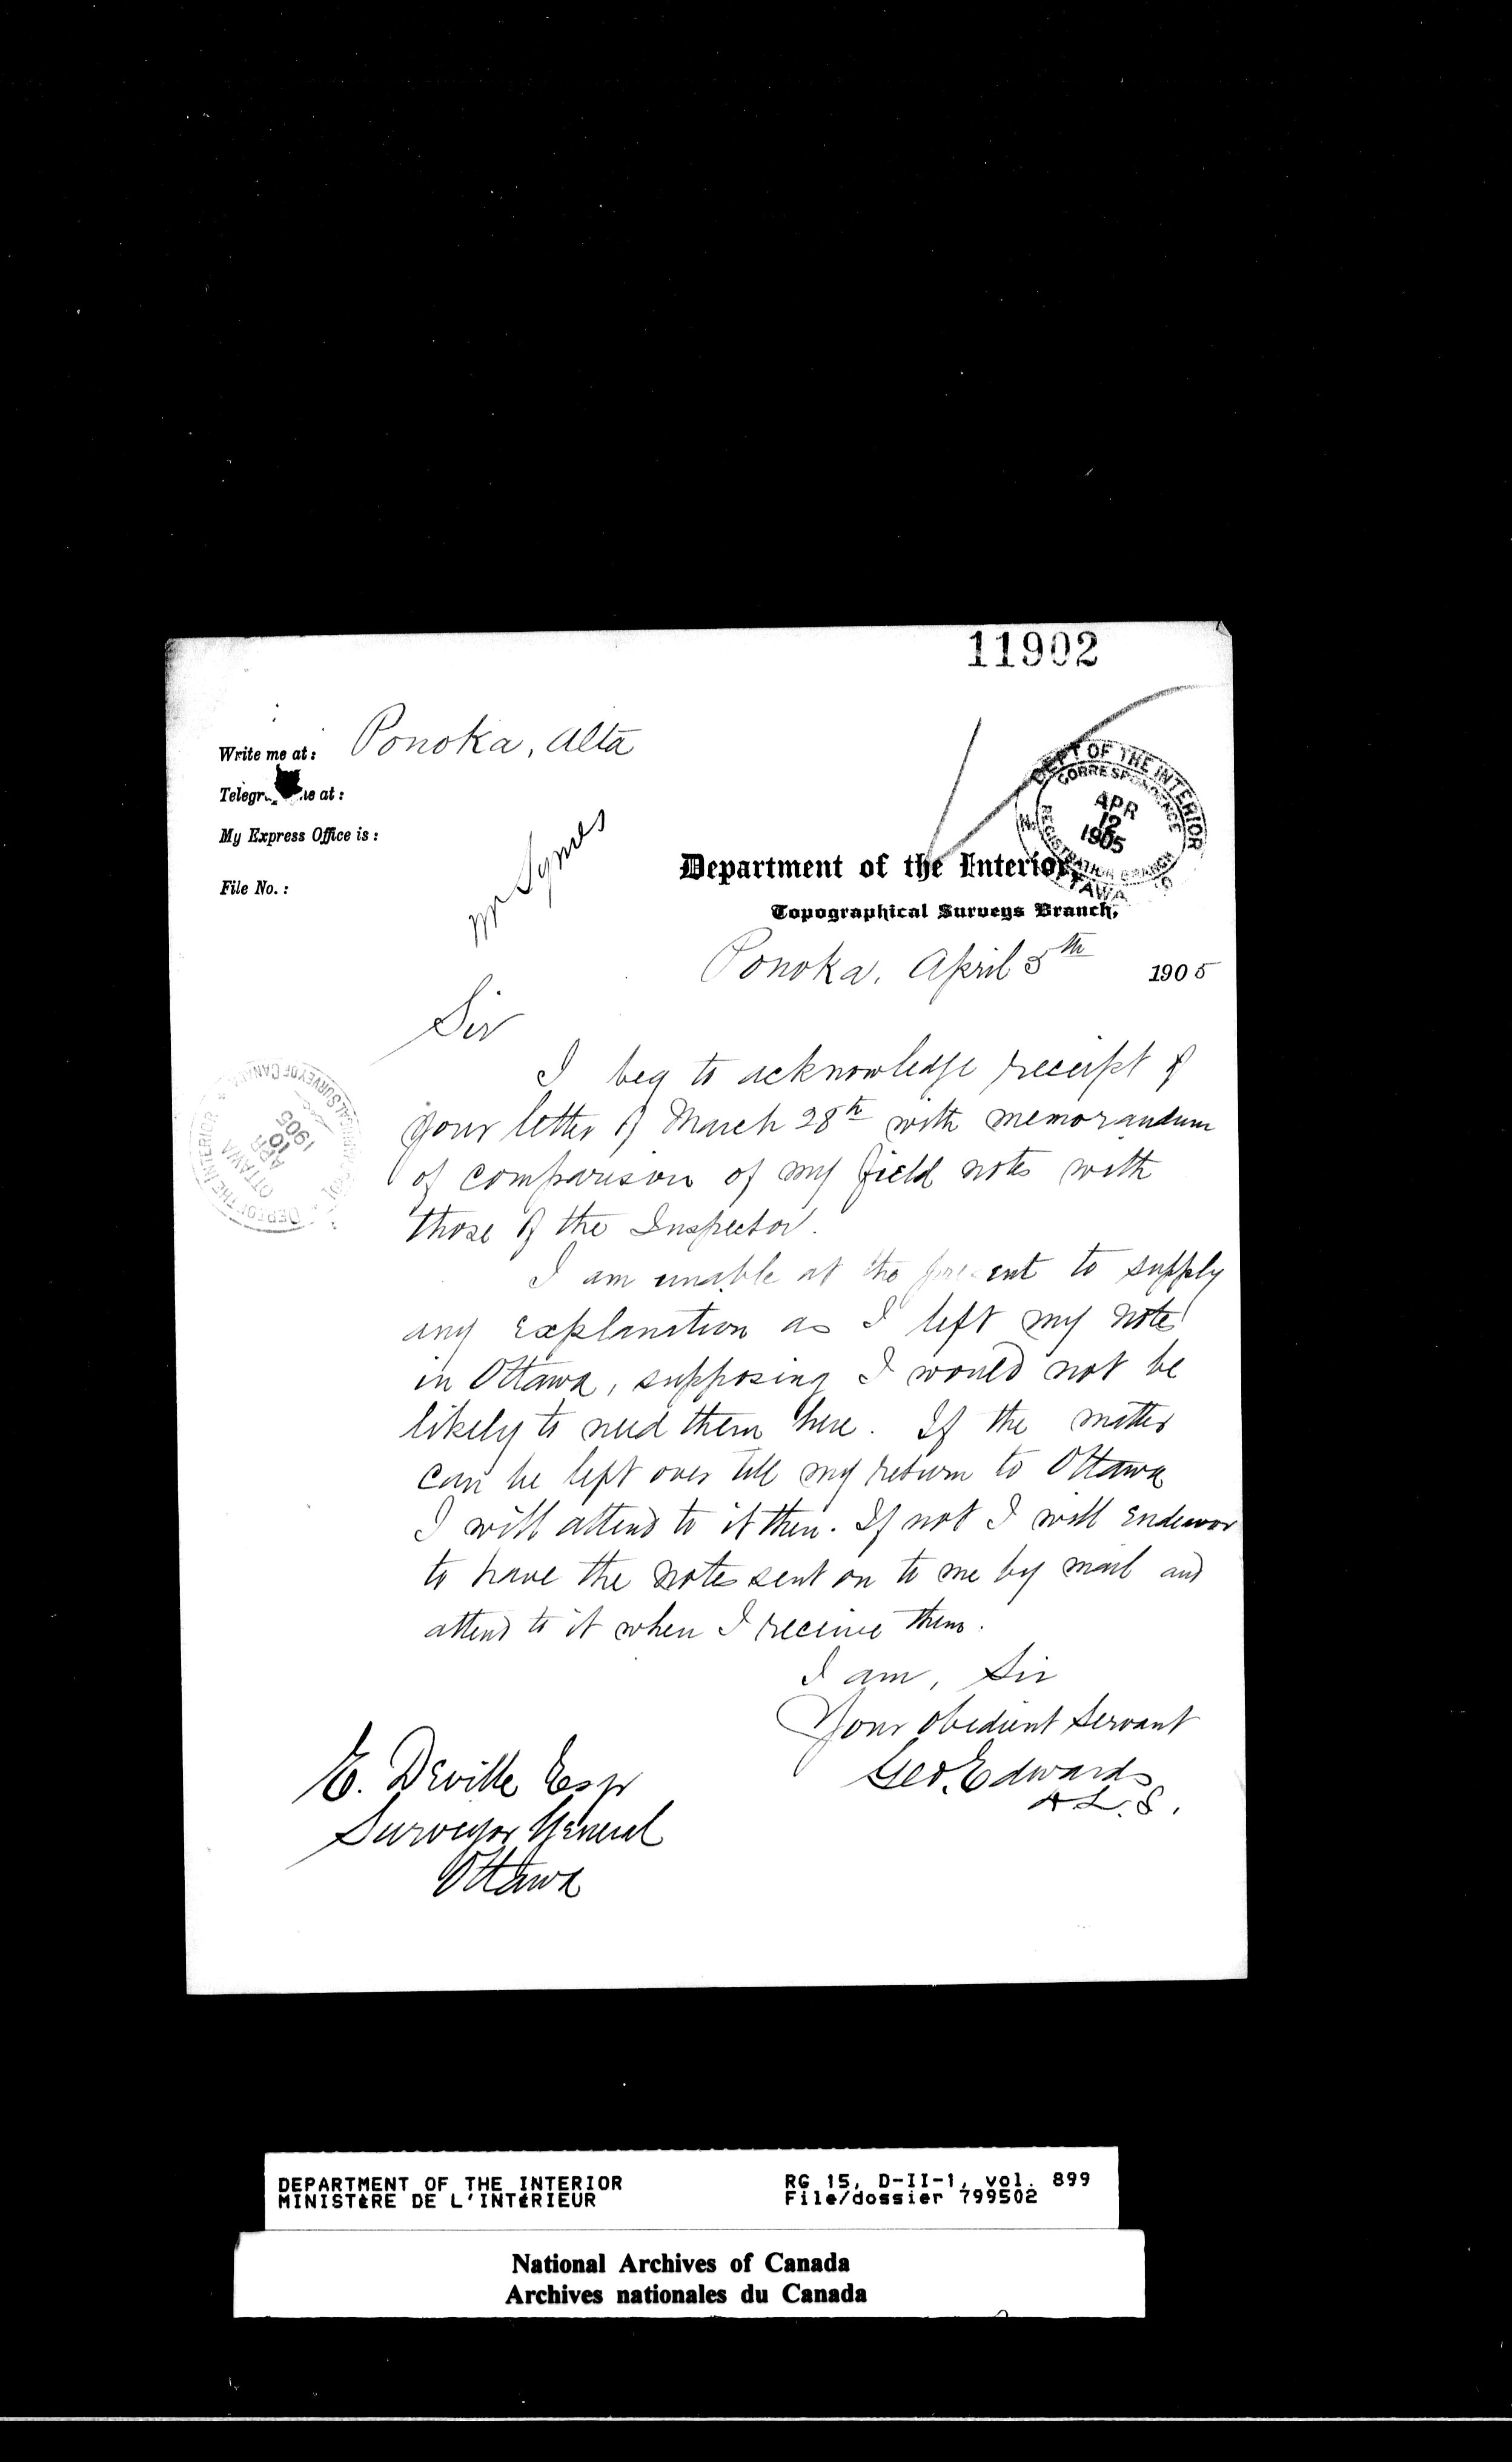 11902
Write me at: Ponoka, Alta
Telegr
me at:
My Express Office is:
File No.:
Mr Symes
DEPT OF THE INTERIOR
CORRESPONDENCE
APR
12
1905
REGISTRATION BRANCH
OTTAWA
Department of the Interior,
Topographical Surveys Branch,
Ponoka, April 5th 1905
Sir
I beg to acknowledge receipt of
your letter of March 28th with memorandum
of comparison of my field notes with
those of the Inspector.
I am unable at the present to supply
any explanation as I left my notes
in Ottawa, supposing I would not be
likely to need them here. If the matter
can be left over till my return to Ottawa
I will attend to it then. If not I will endeavor
to have the notes sent on to me by mail and
attend to it when I receive them.
I am, Sir
Your obedient servant
Geo. Edwards
L. S.
DEPT OF THE INTERIOR
OTTAWA
APR
10
1905
SURVEY OF CANADA
E. Deville Esqr
Surveyor General
Ottawa
DEPARTMENT OF THE INTERIOR
MINISTÈRE DE L'INTÉRIEUR
RG 15, D-II-1, vol. 899
File/dossier 799502
National Archives of Canada
Archives nationales du Canada